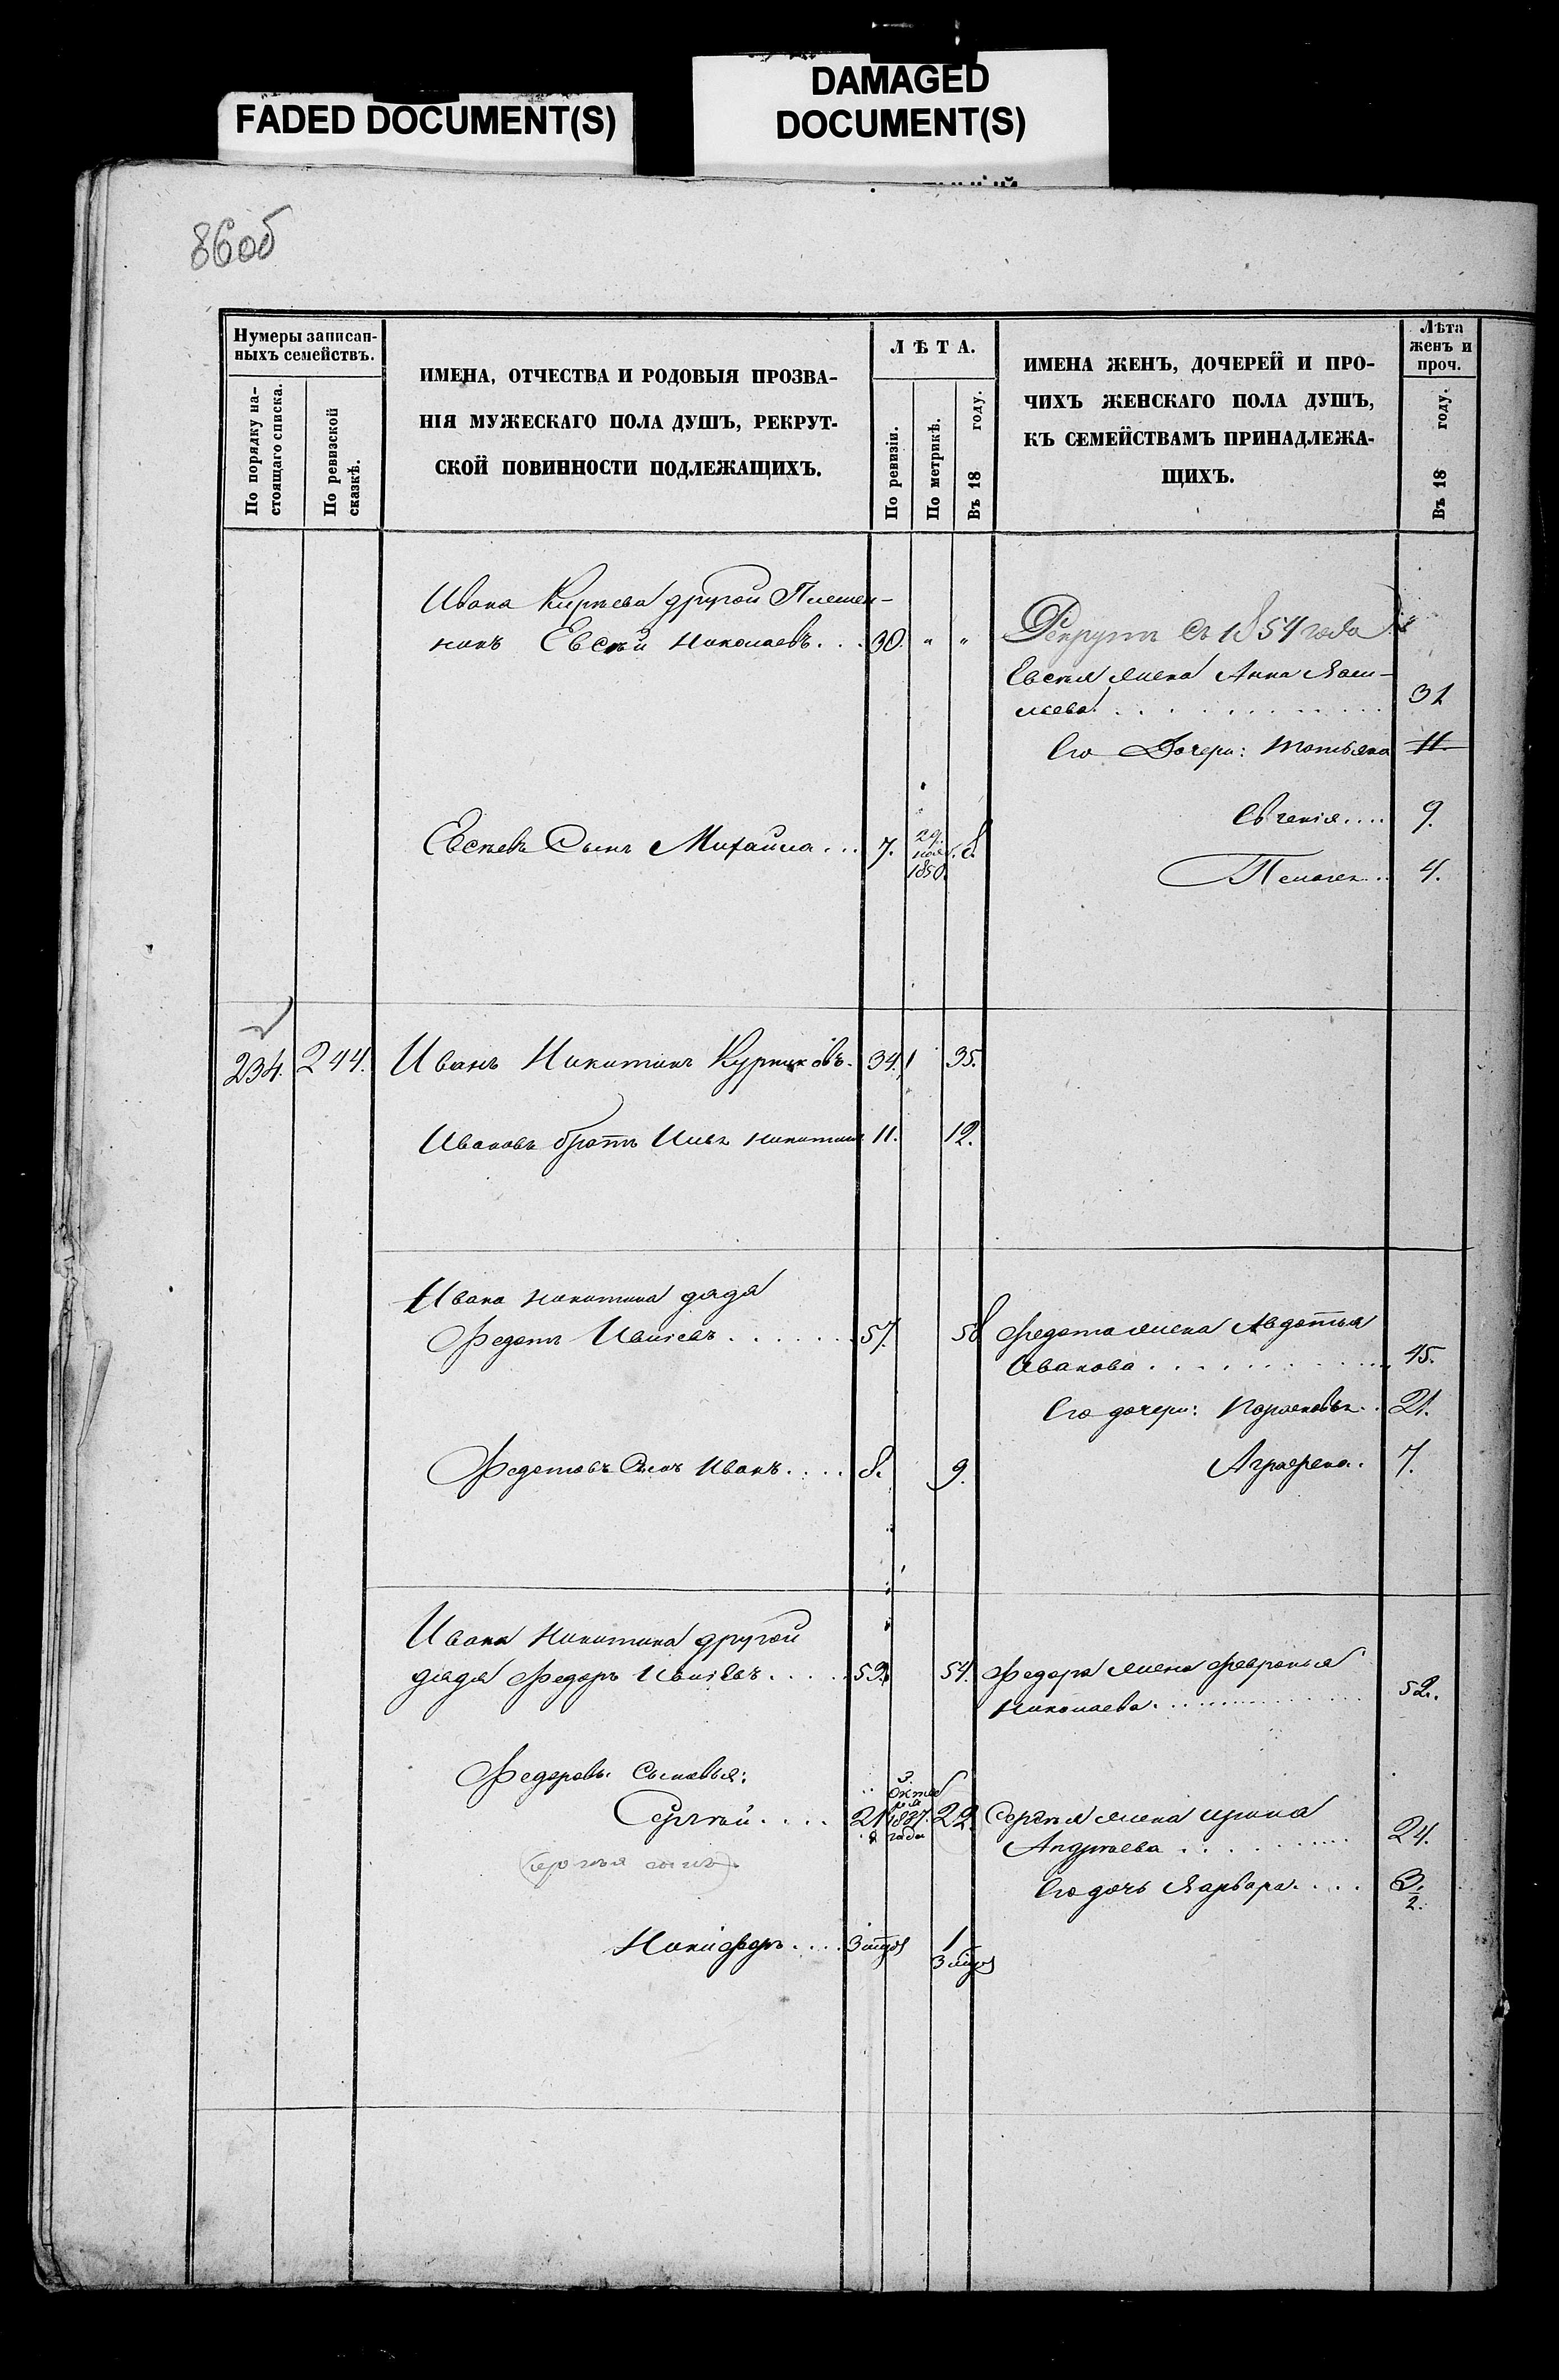 FADED DOCUMENT(S)
DAMAGED
DOCUMENT(S)
86об
Нумеры записан-
ныхъ семействъ.
По порядку на-
стоящаго списка.
По ревизской
сказкѣ.
ИМЕНА, ОТЧЕСТВА И РОДОВЫЯ ПРОЗВА-
НІЯ МУЖЕСКАГО ПОЛА ДУШЪ, РЕКРУТ-
СКОЙ ПОВИННОСТИ ПОДЛЕЖАЩИХЪ.
ЛѢТА.
По ревизіи.
По метрикѣ.
Въ 18 году.
ИМЕНА ЖЕНЪ, ДОЧЕРЕЙ И ПРО-
ЧИХЪ ЖЕНСКАГО ПОЛА ДУШЪ,
КЪ СЕМЕЙСТВАМЪ ПРИНАДЛЕЖА-
ЩИХЪ.
Лѣта
женъ и
проч.
Въ 18 году.
Ивана Кирѣева другой Племен-
никъ Евсѣй Николаевъ... 30. " "
Рекрутъ съ 1854 года
Евсѣя жена Анна Васи-
льева. 31
Его Дочери: Татьяна 11.
Евгенія.... 9.
Евсѣевъ Сынъ Михайла... 7. 29. нояб. 1850. 8.
Пелагея.. 4.
234. 244. Иванъ Никитинъ 34. 35.
Ивановъ братъ Илья Никитинъ 11. 12.
Ивана Никитина дядя
Федотъ 57. 58 Федота жена Авдотья
Иванова 45.
Его дочери: Парасковья. 21.
Федотовъ Сынъ Иванъ.... 8. 9. Аграфена. 7.
Ивана Никитина другой
дядя Федоръ 53. 54. Федора жена Февронья
Николаева. 52.
Федоровы Сыновья:
Сергѣй.... 21 3. Октября 1837. года 22. Сергѣя жена Ирина
Андреева 24.
(Сергѣя сынъ).
Его дочь Варвара....
Никифоръ.... 3 мѣс 1
3 мѣс